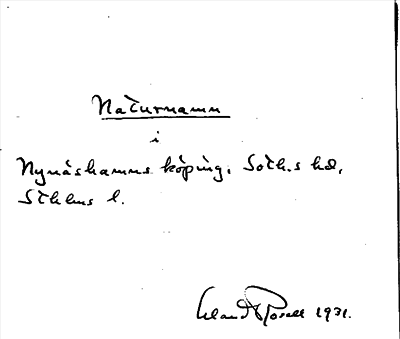 Naturnamn
i
Nynäshamns köping, Soth.s hd,
Sthlms l.
Erland Rosell 1931.